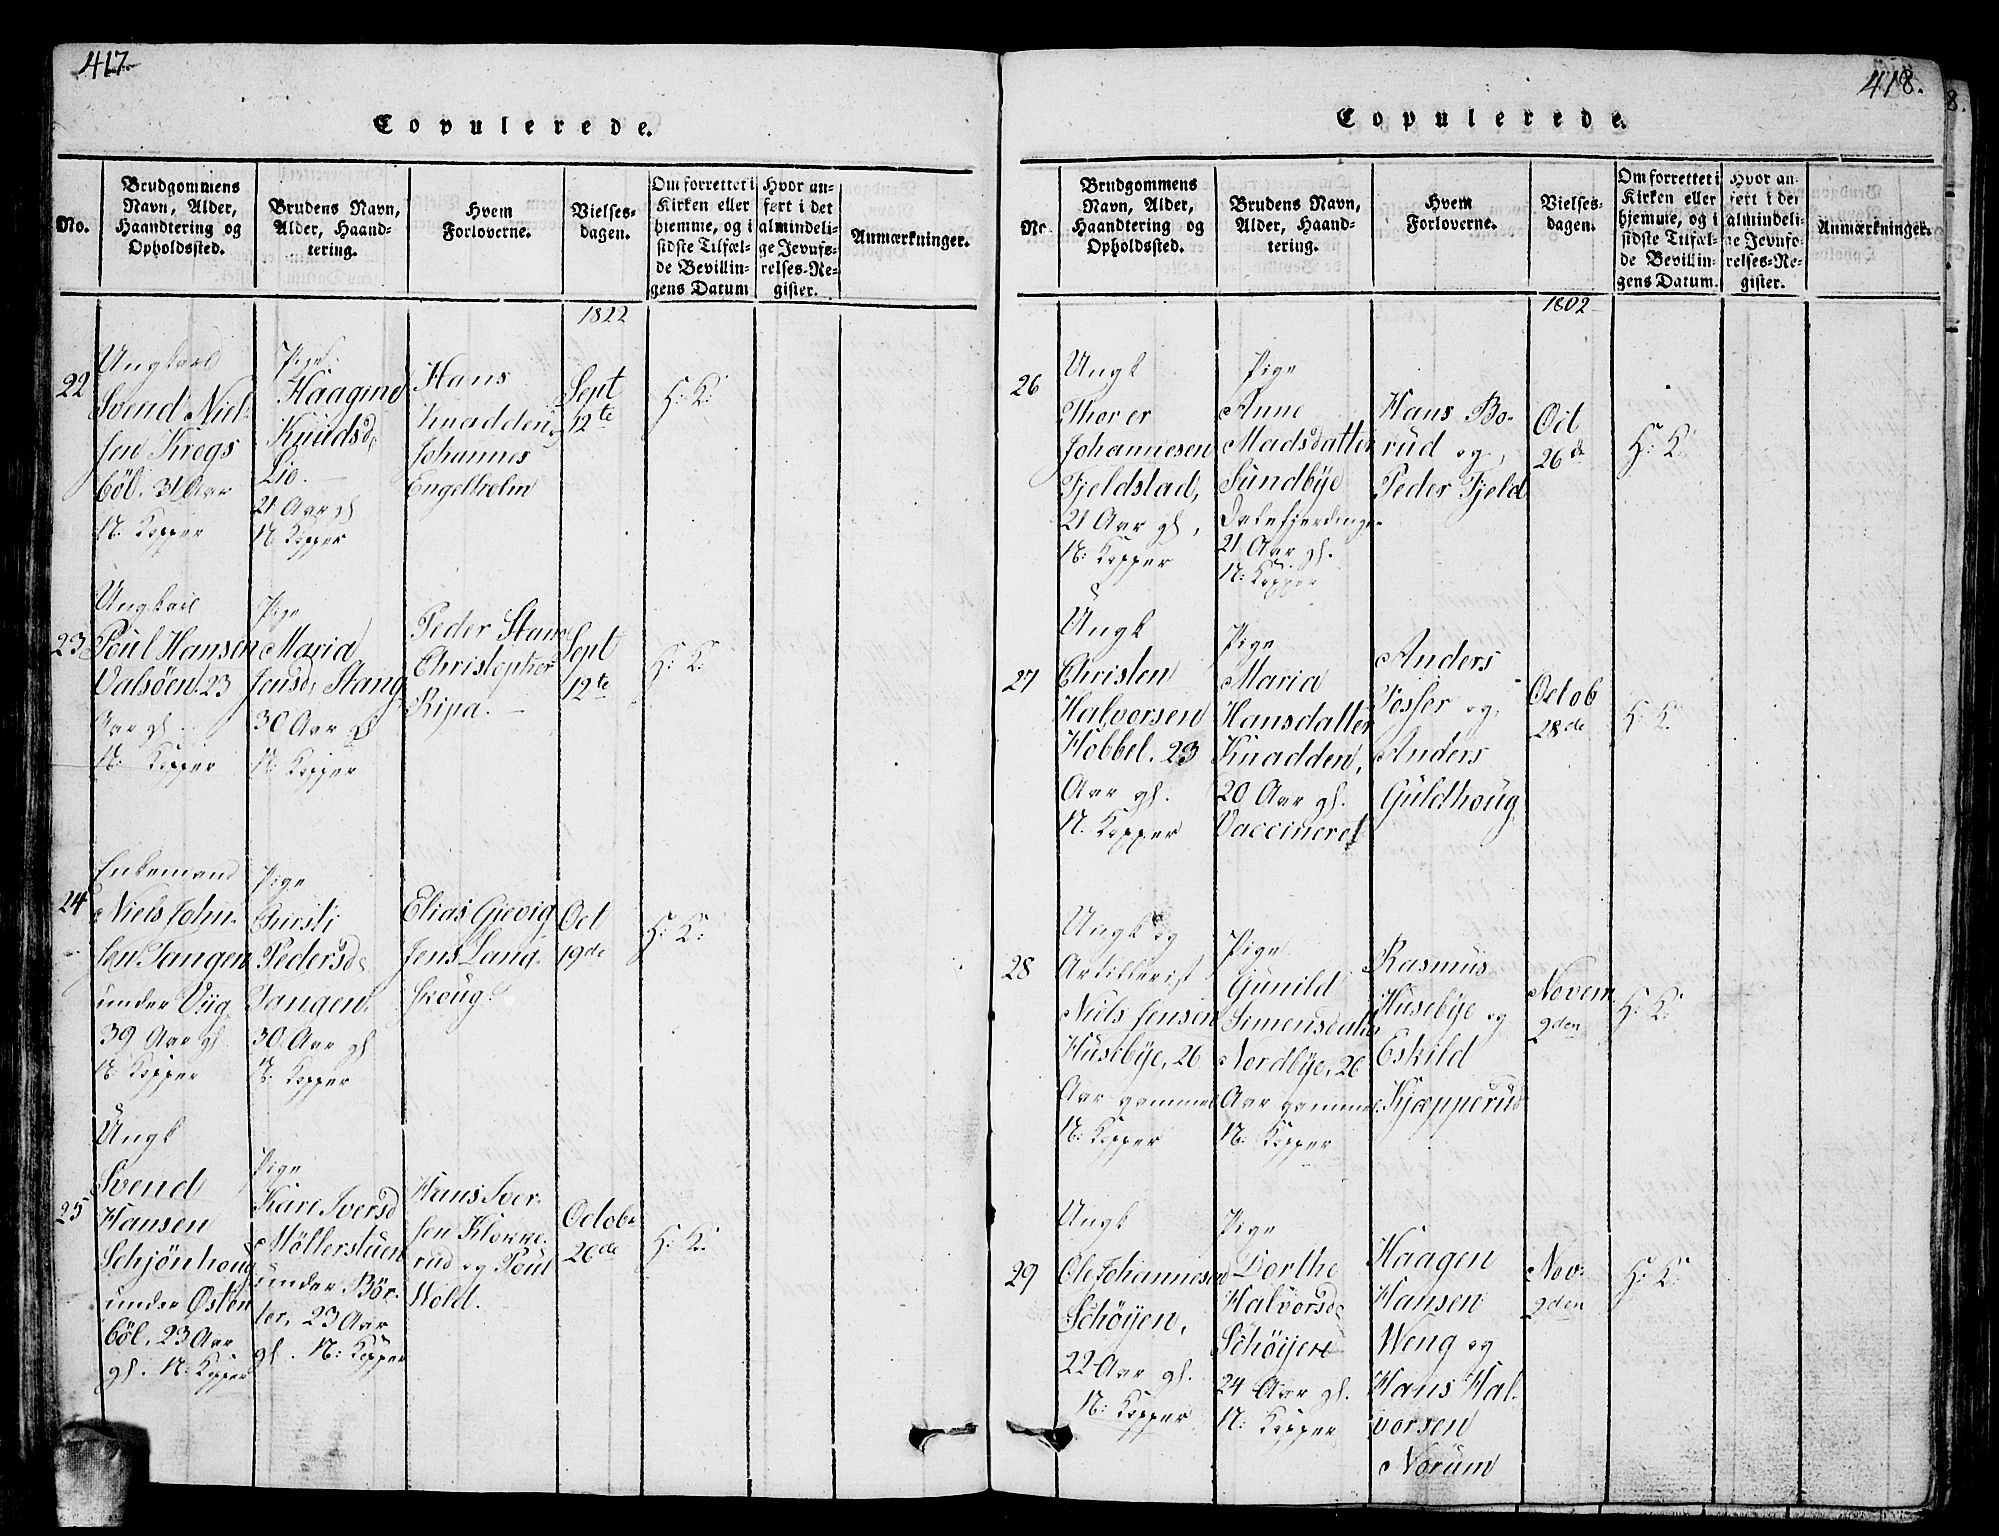 417.
Copulerede.
No.
Brudgommens Navn, Alder, Haandtering og Opholdssted.
Brudens Navn, Alder, Haandtering.
Hvem Forloverne.
Vielsesdagen.
Om forrettet i Kirken eller hjemme, og i sidste Tilfælde Bevillingens Datum
Hvor anført i det almindelige Jevnførelses-Register.
Anmærkninger.
1822
22
Ungkarl
Svend Niel-
sen Krogs
böl. 31 Aar
N: Kopper
Pige
Haagine
Knudsd:
Lie.
21 Aar gl
N: Kopper
Hans
Knadden
Johannes
Engelholm
Sept
12te
H: K:
23
Ungkarl
Poul Hansen
Valsöen. 23
Aar gl.
N: Kopper
Pige
Maria
Jensd: Stang
30 Aar gl
N: Kopper
Peder Stang
Christopher
Ripa.
Sept
12te
H: K:
24
Enkemand
Niels John-
sen Tangen
under
39 Aar gl
N: Kopper
Pige
Christi
Pedersd:
Tangen.
30 Aar gl
N: Kopper
Elias Gjevig
Jens Lang-
skoug.
Oct
19de
H: K:
25
Ungk
Svend
Hansen
Schjönhoug
under Østen
böl. 23 Aar
gl. N: Kopper
Pige
Kari Iversd
Möllerstuen
under Bör-
ter, 23 Aar
gl. N: Kopper
Hans Iver-
sen Klokke-
rud og Poul
Wold.
Octob:
26de
H: K:
418.
Copulerede.
No.
Brudgommens Navn, Alder, Haandtering og Opholdssted.
Brudens Navn, Alder, Haandtering.
Hvem Forloverne.
Vielsesdagen.
Om forrettet i Kirken eller hjemme, og i sidste Tilfælde Bevillingens Datum.
Hvor anført i det almindelige Jevnførelses-Register.
Anmærkninger.
1802
26
Ungk
Thorer
Johannesen
Fjeldstad,
21 Aar gl,
N: Kopper
Pige
Anne
Madsdatter
Sundbye
Dalefjerdingen
21 Aar gl.
N: Kopper
Hans Bo-
rud og
Peder Fjeld
Oct
26de
H: K:
27
Ungk
Christen
Halvorsen
Hobbel. 23
Aar gl.
N. Kopper
Pige
Maria
Hansdatter
Knadden,
20 Aar gl.
Vaccineret
Anders
Fosser og
Anders
Guldhoug
Octob
28de
H: K:
28
Ungk og
Artillerist
Niels Jensen
Husebye, 26
Aar gammel
N: Kopper
Pige
Gunild
Simensdatter
Nordbye, 26
Aar gammel
N: Kopper
Rasmus
Husebye og
Eskild
Kjæpperud
Novem
9den
H: K:
29
Ungk
Ole Johannesen
Schöyen,
22 Aar gl.
N: Kopper
Pige
Dorthe
Halvorsd:
Schöyen
24 Aar gl.
N: Kopper
Haagen
Hansen
Weng og
Hans Hal-
vorsen
Norum
Nov:
9den
H: K:
8.